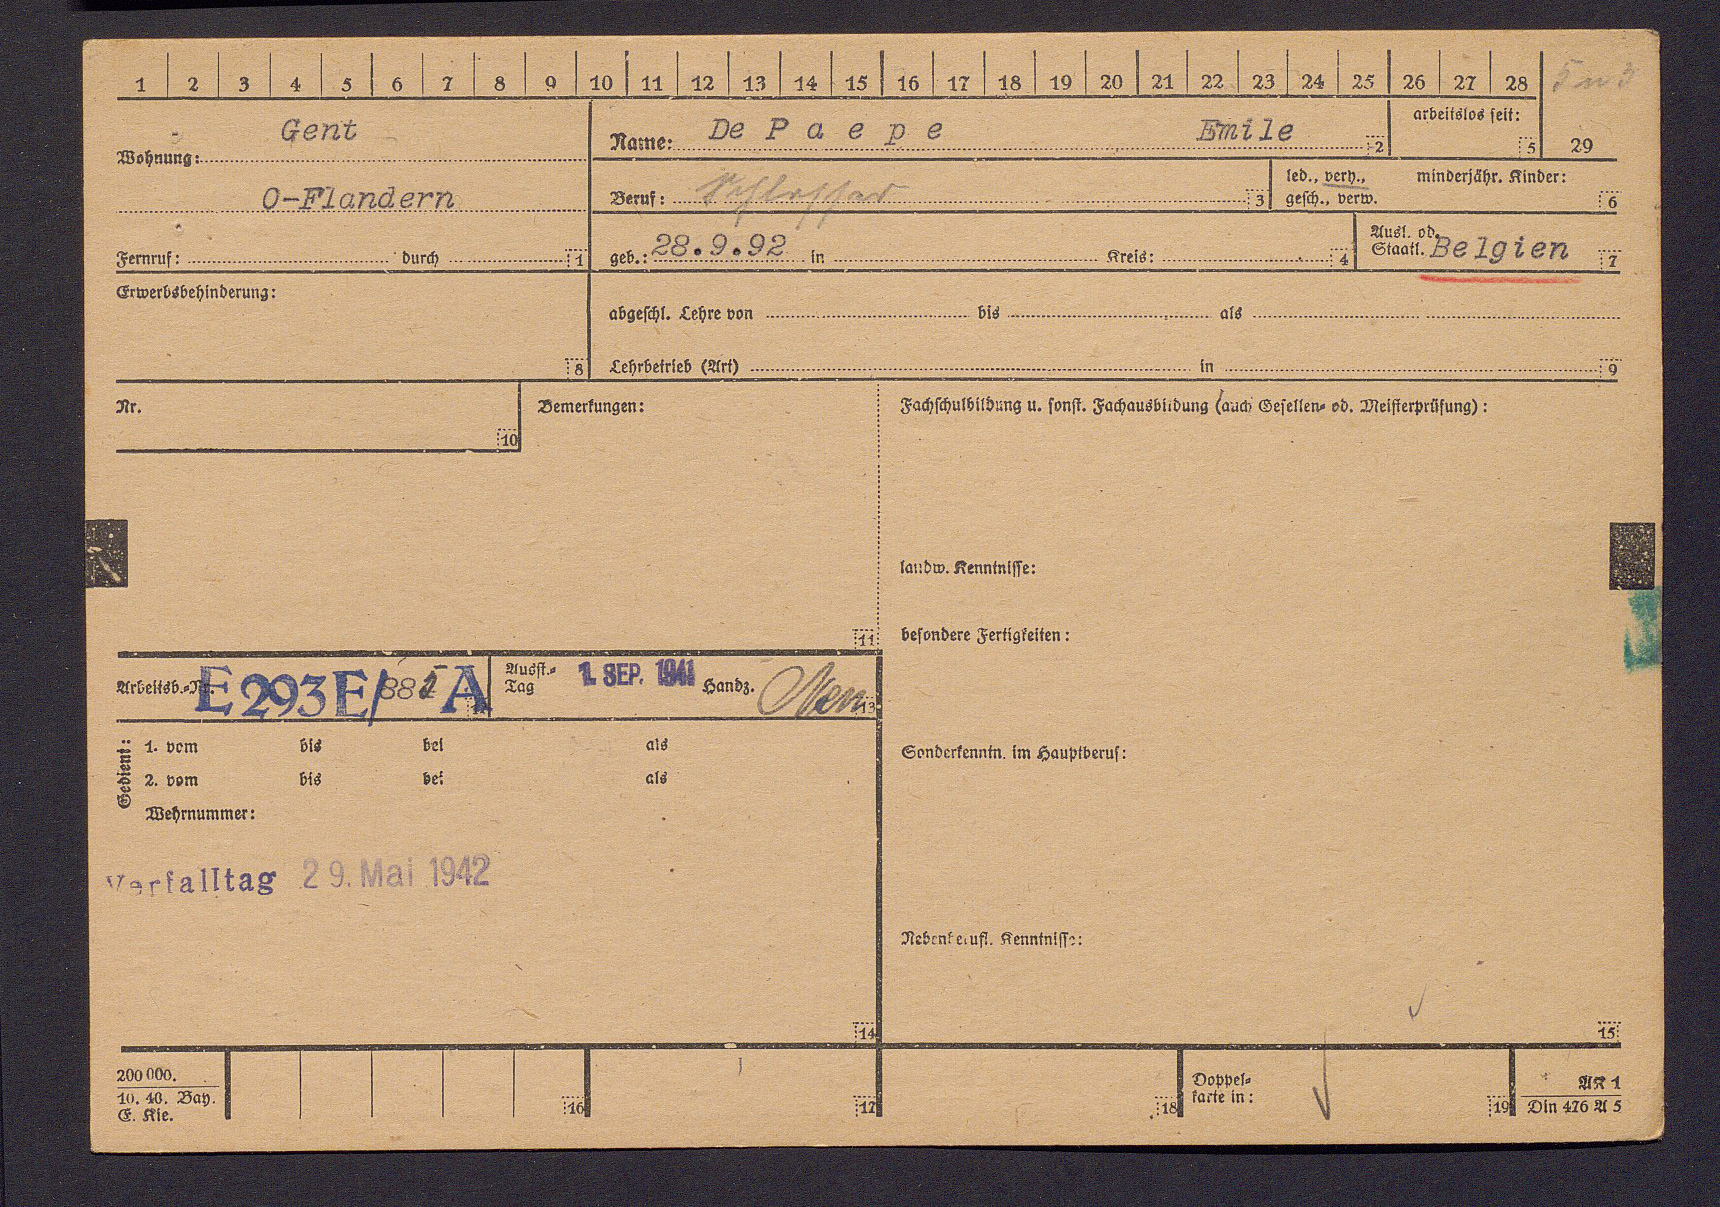 1 2 3 4 5 6 7 8 9 10 11 12 13 14 15 16 17 18 19 20 21 22 23 24 25 26 27 28
29
Wohnung: Gent
O-Flandern
Fernruf: durch 1
Name: De Paepe Emile 2
arbeitslos seit: 5
Beruf: Schlosser 3
led., verh., gesch., verw.
minderjähr. Kinder: 6
geb.: 28.9.92 in Kreis: 4
Ausl. od. Staatl. Belgien 7
Erwerbsbehinderung: 8
abgeschl. Lehre von bis als
Lehrbetrieb (Art) in 9
Nr. 10
Bemerkungen: 11
Fachschulbildung u. sonst. Fachausbildung (auch Gesellen- od. Meisterprüfung):
landw. Kenntnisse:
besondere Fertigkeiten:
Sonderkenntn. im Hauptberuf:
Nebenberufl. Kenntnisse:
15
Arbeitsb.-Nr. E 293 E/ A
Ausst.-Tag 1. SEP. 1941 Handz. 13
Gedient:
1. vom bis bei als
2. vom bis bei als
Wehrnummer:
Verfalltag 29. Mai 1942
14
200 000.
10. 40. Bay.
E. Kie.
16 17 18
Doppel-
karte in: 19
AK 1
Din 476 A 5